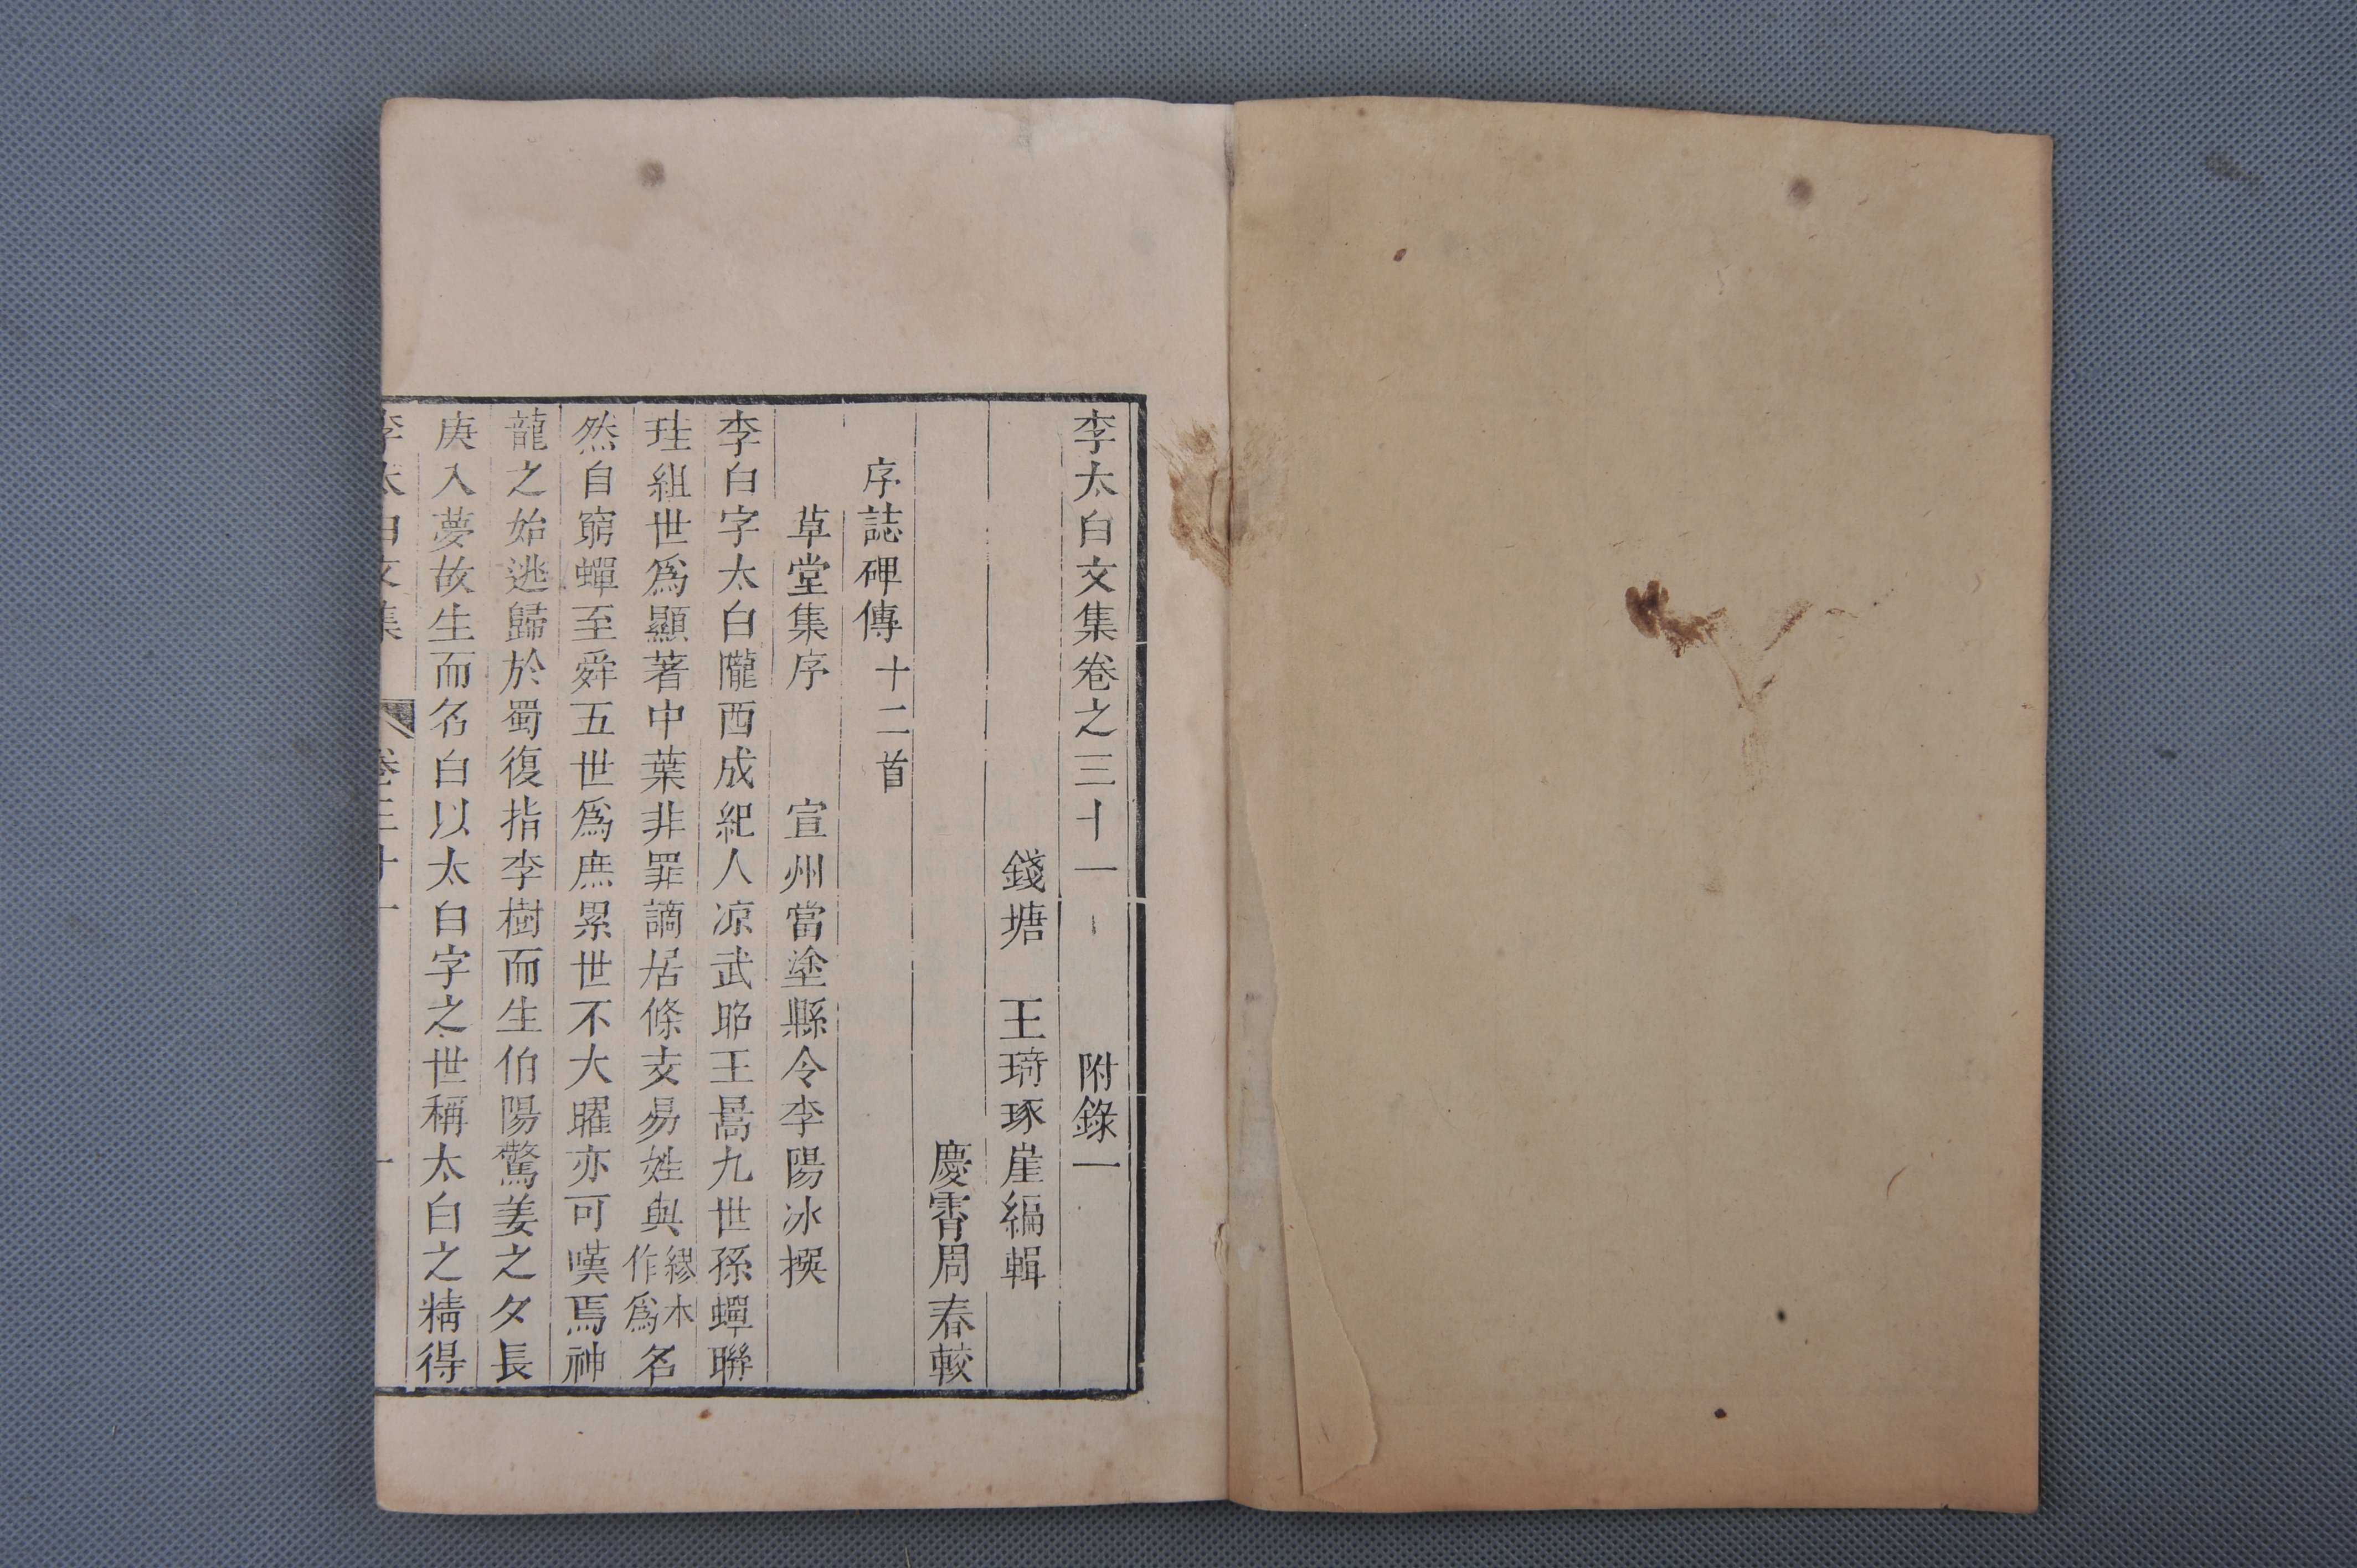 李太白文集卷之三十一 附錄一
錢塘 王琦琢崖編輯
慶霄周春較
序誌碑傳十二首
草堂集序 宣州當塗縣令李陽冰撰
李白字太白隴西成紀人凉武昭王暠九世孫蟬聯
珪組世為顯著中葉非罪謫居條支易姓與繆本作為名
然自窮蟬至舜五世為庶累世不大曜亦可嘆焉神
龍之始逃歸於蜀復指李樹而生伯陽驚姜之夕長
庚入夢故生而名白以太白字之世稱太白之精得
李太白文集 卷三十一 一